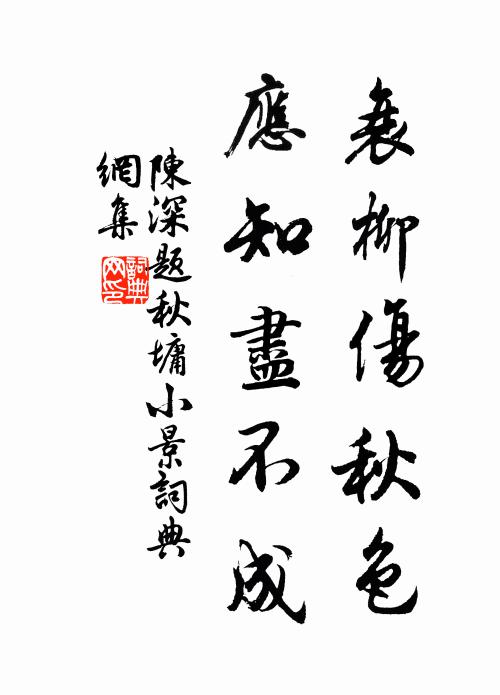 衰柳傷秋色
應知盡不成
陳深题秋墉小景詞典
網集
詞典
网印